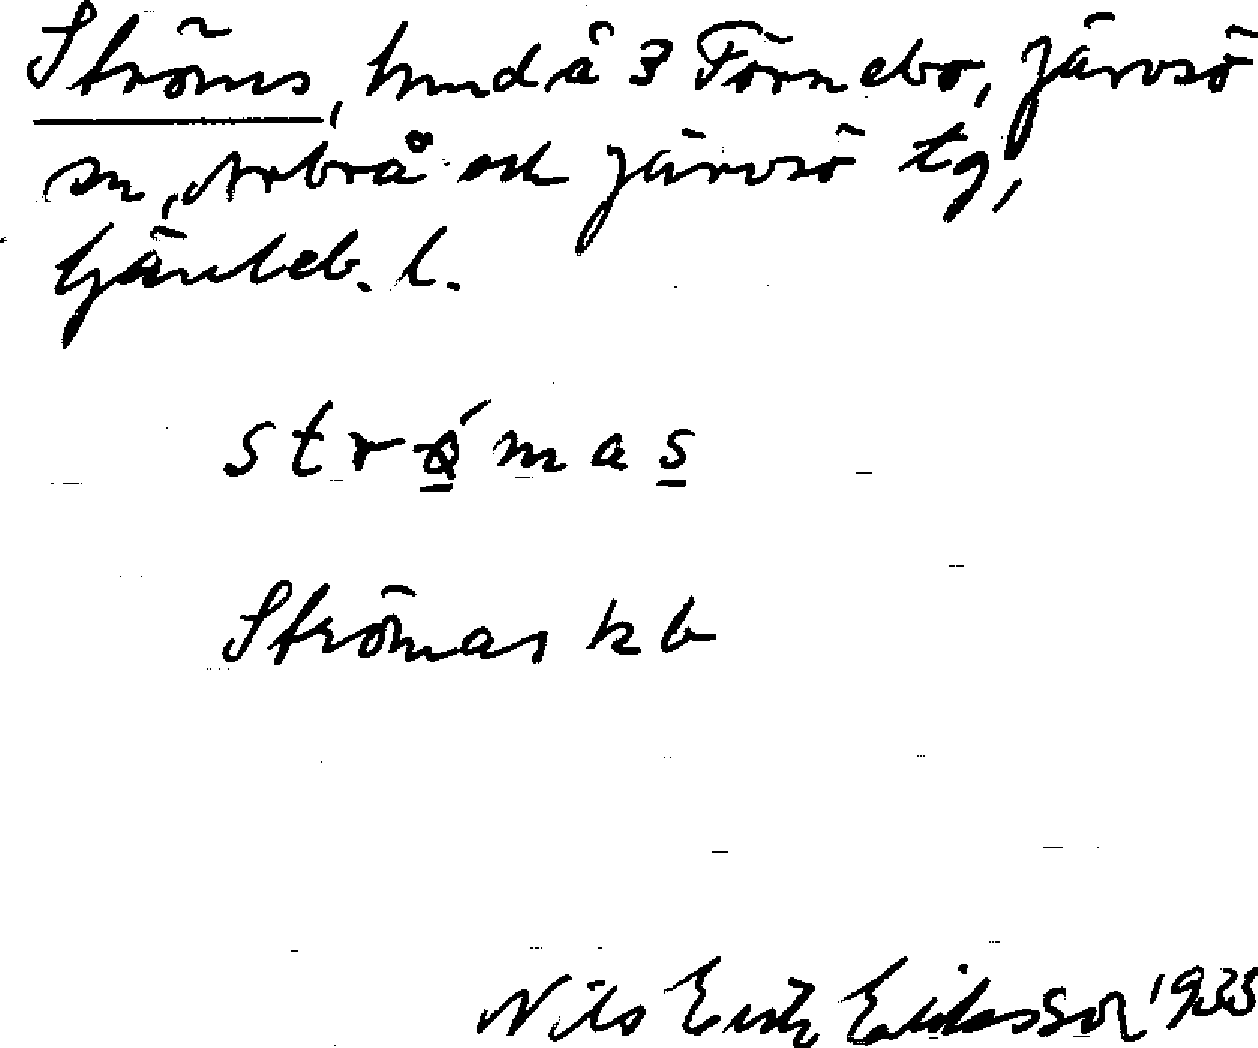 Ströms, hmd å 3 Förnebo, Järvsö
sn, Arbrå och Järvsö tg,
Gävleb. l.
strǿ̱mas̱
Strömas kb
Nils Erik Eriksson 1935